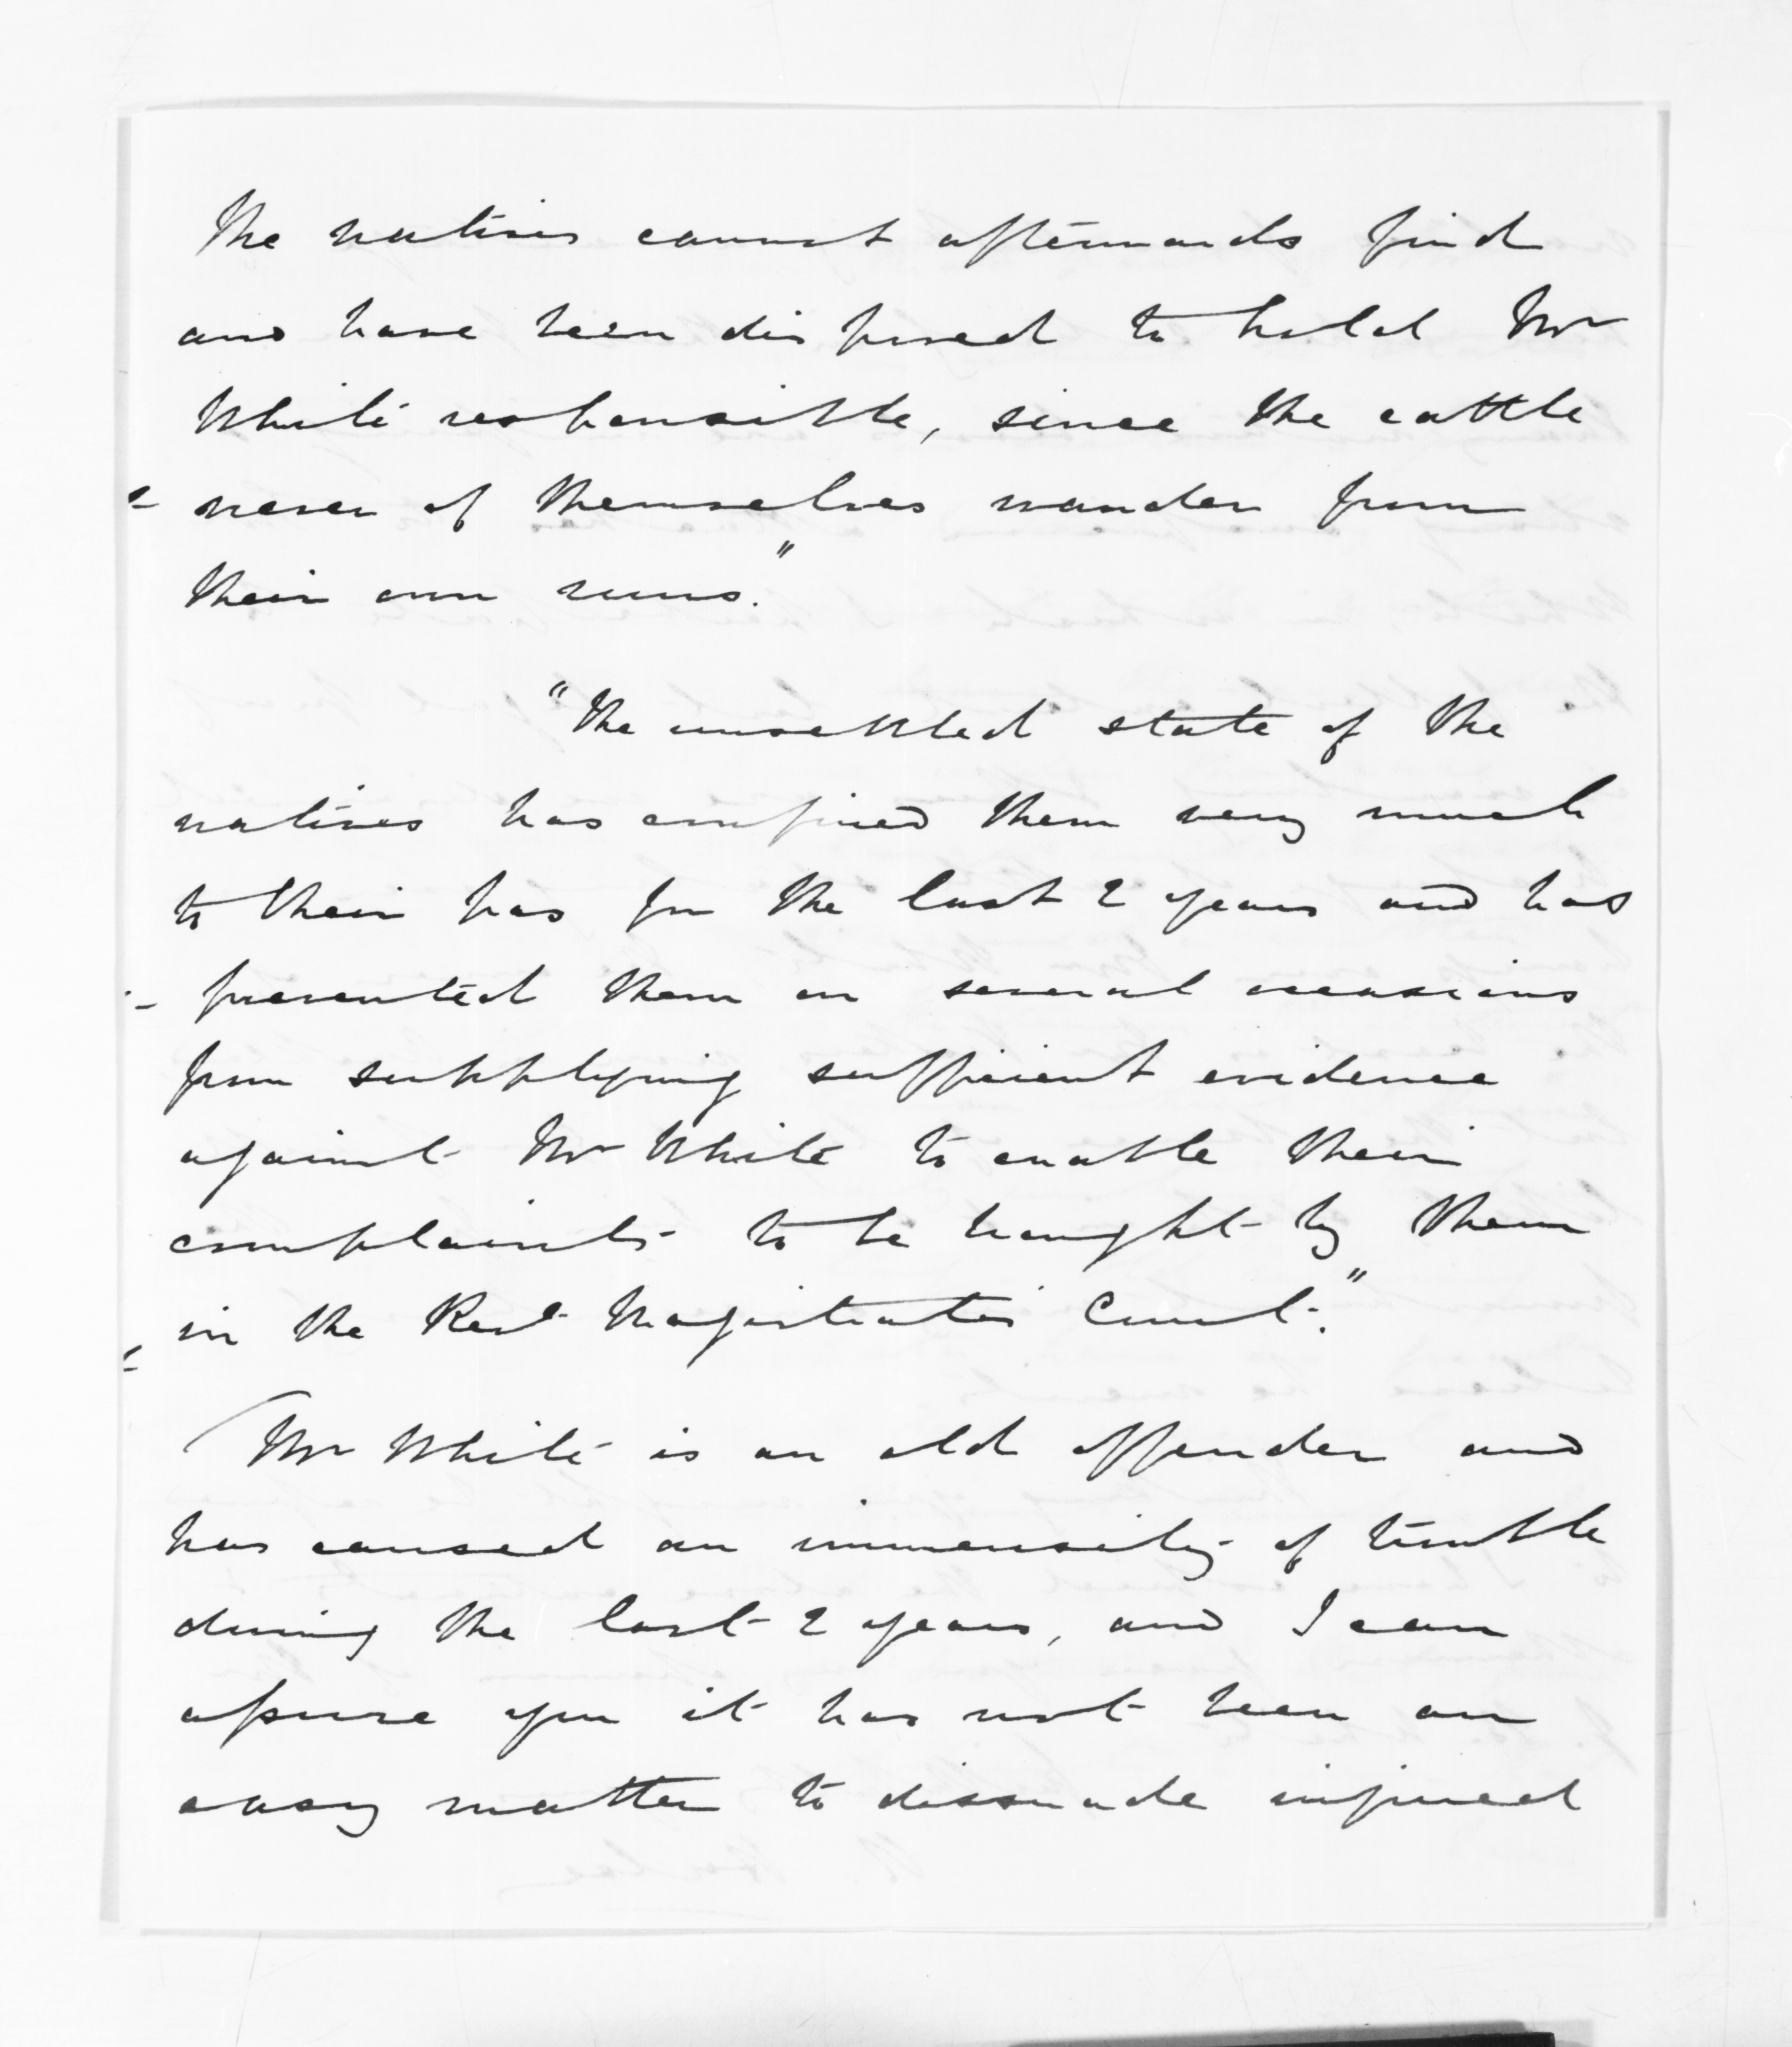 The natives cannot afterwards find
and have been disposed to hold Mr
White responsible, since the cattle
never of themselves wander from
their own runs."
"The unsettled state of the
natives has confined them very much
to their pas for the last 2 years and has
prevented them on several occasions
from supplying sufficient evidence
against Mr White to enable their
complaints to be brought by them
in the Resd Magistrates Court."
Mr White is an old offender and
has caused an immensity of trouble
during the last 2 years, and I can
assure you it has not been an
easy matter to dissuade injured